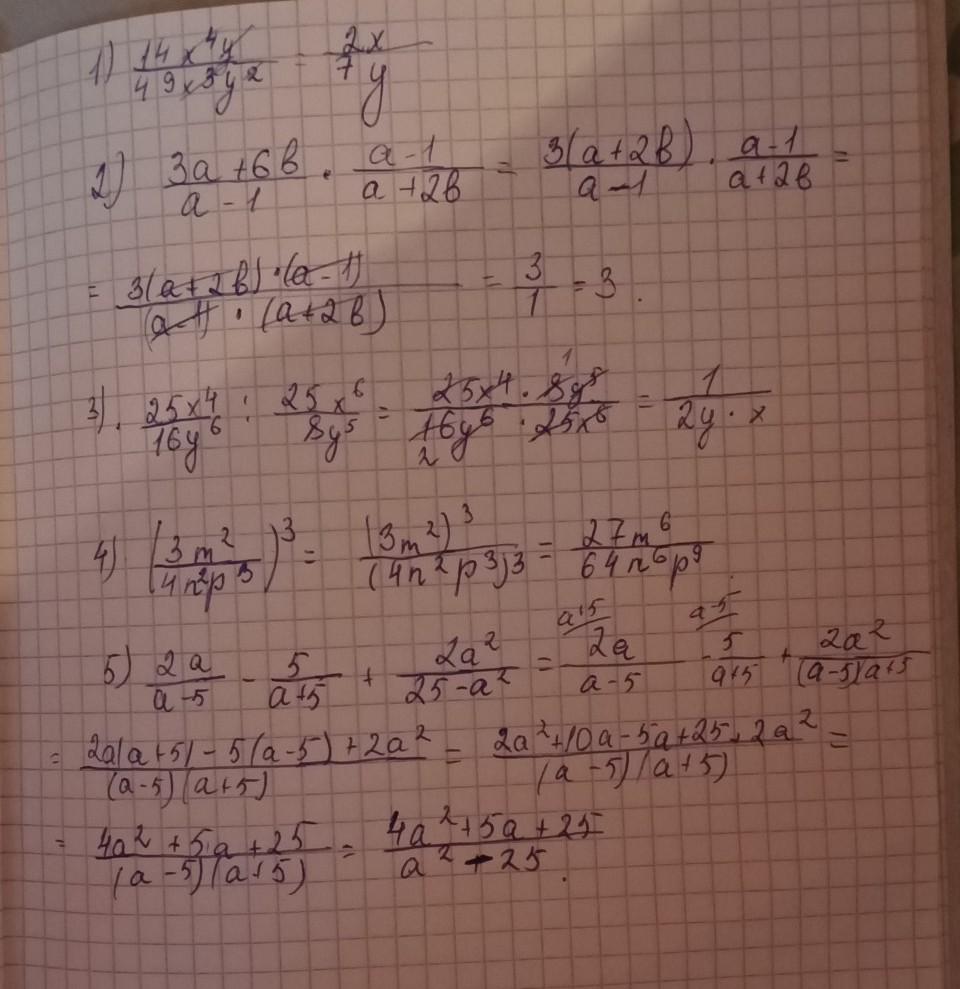 1) 14x⁴y / 49x³y² = 2x / 7y
2) 3a+6b / a-1 · a-1 / a+2b = 3(a+2b) / a-1 · a-1 / a+2b =
= 3(a+2b)·(a-1) / (a-1)·(a+2b) = 3/1 = 3.
3). 25x⁴ / 16y⁶ : 25x⁶ / 8y⁵ = 25x⁴ · 8y⁵ 1 / 16y⁶ · 25x⁶ 2 = 1 / 2y·x
4) (3m² / 4n²p³)³ = (3m²)³ / (4n²p³)³ = 27m⁶ / 64n⁶p⁹.
5) 2a / a-5 - 5 / a+5 + 2a² / 25-a² = a+5/ 2a / a-5 - a-5/ 5 / a+5 + 2a² / (a-5)(a+5
= 2a(a+5)-5(a-5)+2a² / (a-5)(a+5) = 2a²+10a-5a+25+2a² / (a-5)(a+5) =
= 4a²+5a+25 / (a-5)(a+5) = 4a²+5a+25 / a²-25.